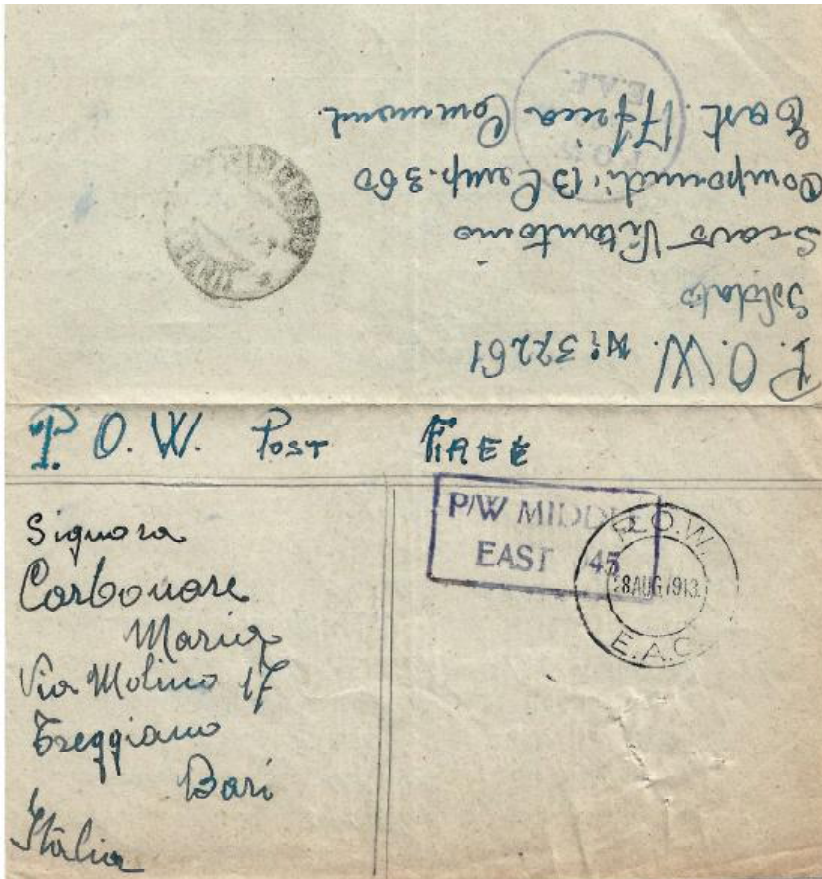 P.O.W. Nº 32261
Soldato
Scaro Vitantonio
Compound: 13 Camp. 360
East. Africa Command.
P.O.W.
E.A.F.
P. O. W. Post FREE
P/W MIDDLE
EAST 45
P.O.W.
28 AUG 1943
E.A.C.
Signora
Carbonare
Maria
Via Molino 17
Treggiano
Bari
Italia